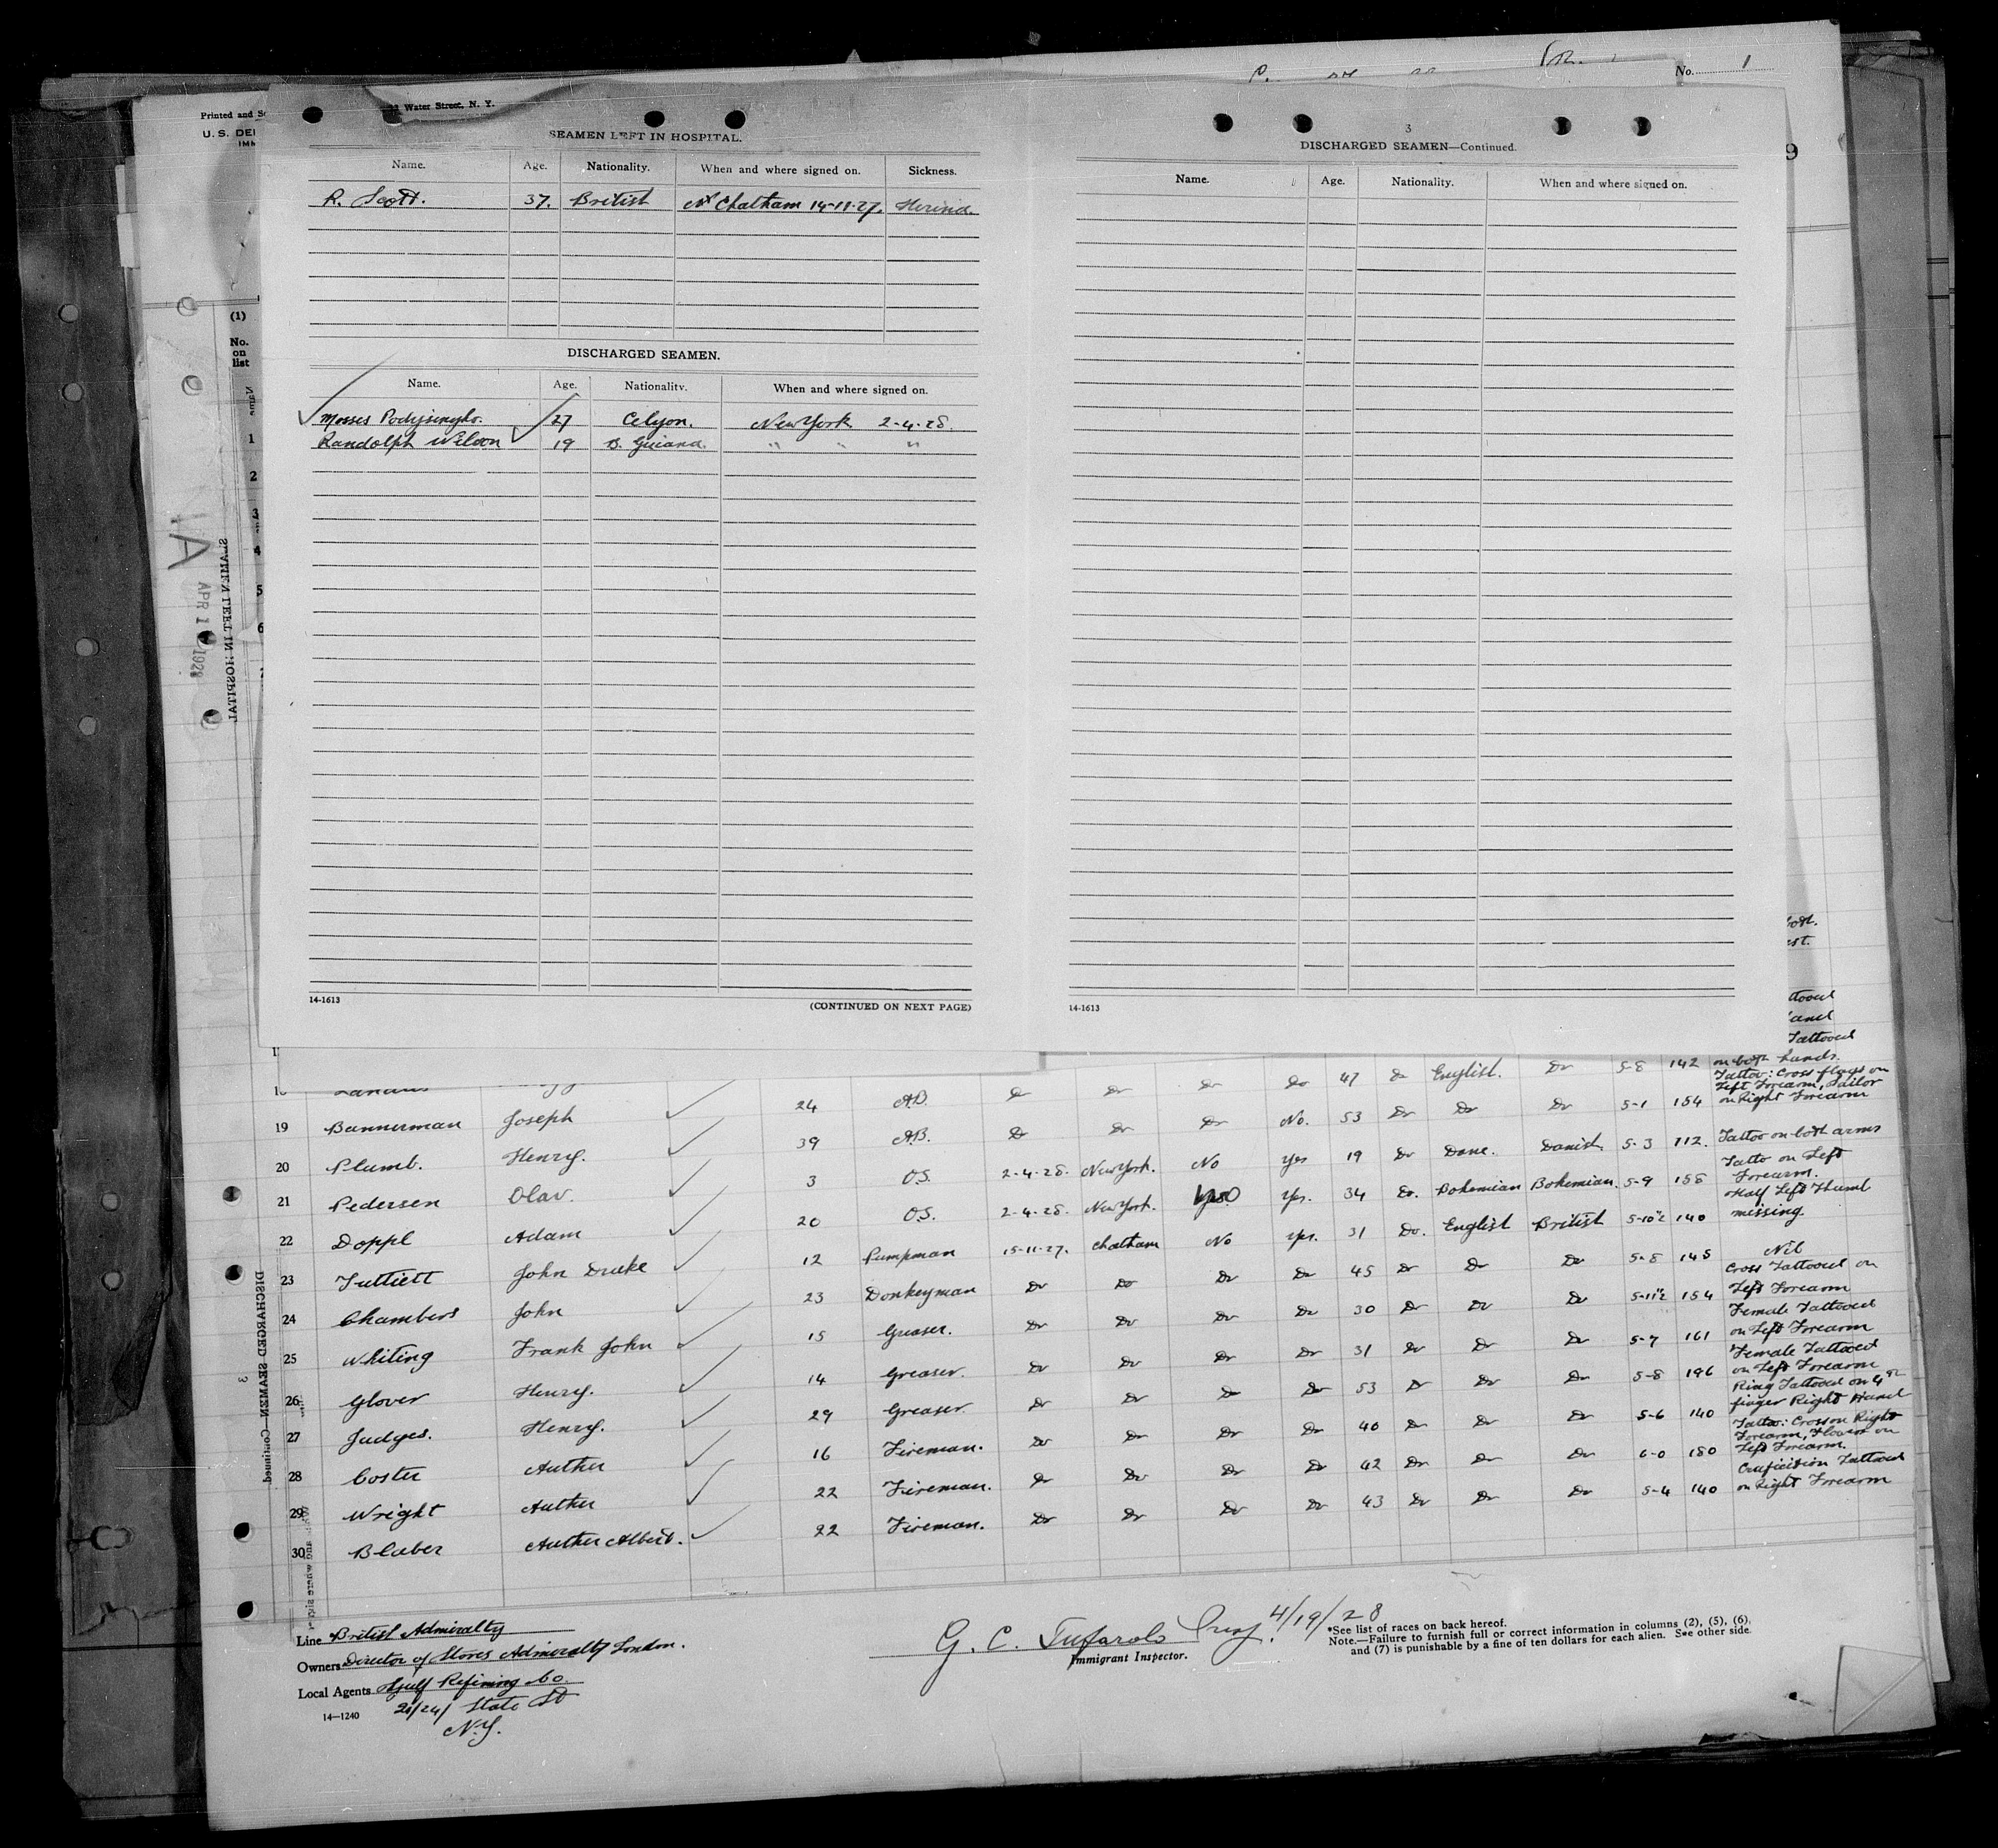 No. 1
Printed and
U. S. DE
Water Street, N. Y.
SEAMEN LEFT IN HOSPITAL.
Name. Age. Nationality. When and where signed on. Sickness.
R. Scott. 37. British At Chatham 14-11-27.
DISCHARGED SEAMEN.
Name. Age. Nationality. When and where signed on.
Mosses 27 Celyon. New York 2-4-28.
Randolph Wilson 19 B. Guiana. " " "
14-1613 (CONTINUED ON NEXT PAGE)
3
DISCHARGED SEAMEN—Continued.
Name. Age. Nationality. When and where signed on.
14-1613
9
(1)
No.
on
list
1
2
3
4
5
6
SEAMEN LEFT IN HOSPITAL
APR 1 1928
Tattooed
on both hands.
24 A.B. Do Do Do Do 47 Do English. Do 5-8 142 Tattoo: Cross flags on
Left Forearm, Sailor
on Right Forearm
19 Bannerman Joseph 39 A.B. Do Do Do No. 53 Do Do Do 5-1 154
20 Plumb. Henry. 3 O.S. 2-4-28. New York. No Yes 19 Do Dane. Danish 5-3 112. Tattoo on both arms
21 Pedersen Olav. 20 O.S. 2-4-28. New York. Yes. 34 Do. Bohemian Bohemian. 5-9 158 Tatto on Left
Forearm.
22 Doppl Adam 12 Pumpman 15-11-27. Chatham No Yes. 31 Do. English British 5-10½ 140 Half Left Thumb
missing.
23 Tuttiett John Drake 23 Donkeyman Do Do Do Do 45 Do Do Do 5-8 145 Nil
24 Chambers John 15 Greaser. Do Do Do Do 30 Do Do Do 5-11½ 154 Cross Tattooed on
Left Forearm
25 Whiting Frank John 14 Greaser. Do Do Do Do 31 Do Do Do 5-7 161 Female Tattooed
on Left Forearm
26 Glover Henry. 29 Greaser. Do Do Do Do 53 Do Do Do 5-8 196 Female Tattooed
on Left Forearm
27 Judges. Henry. 16 Fireman. Do Do Do Do 40 Do Do Do 5-6 140 Ring Tattooed on 4th
finger Right Hand
28 Coster Auther 22 Fireman. Do Do Do Do 42 Do Do Do 6-0 180 Tattoo: Cross on Right
Forearm, Flowers on
Left Forearm.
29 Wright Auther 22 Fireman. Do Do Do Do 43 Do Do Do 5-4 140 Crucifition Tattooed
on Right Forearm
30 Blaber Auther Albert.
DISCHARGED SEAMEN—Continued
3
Line British Admiralty
Owners Director of Stores Admiralty London.
Local Agents Gulf Refining Co.
21/24/ State St
N.Y.
14—1240
G. C. Tufarolo Insp. 4/19/28
Immigrant Inspector.
*See list of races on back hereof.
Note.—Failure to furnish full or correct information in columns (2), (5), (6),
and (7) is punishable by a fine of ten dollars for each alien. See other side.